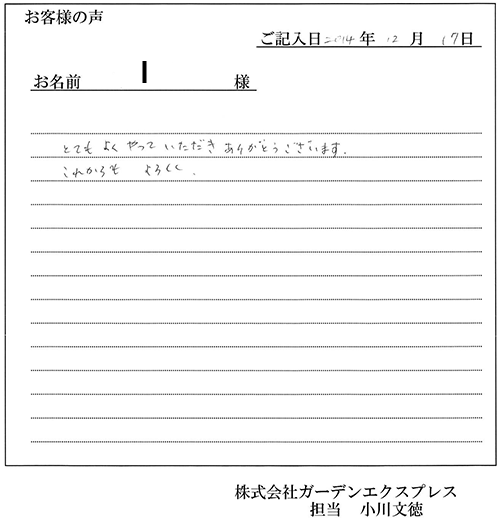 お客様の声
ご記入日 2014年 12月 17日
お名前 I 様
とても よく やって いただき ありがとうございます.
これからも よろしく.
株式会社ガーデンエクスプレス
担当 小川文徳